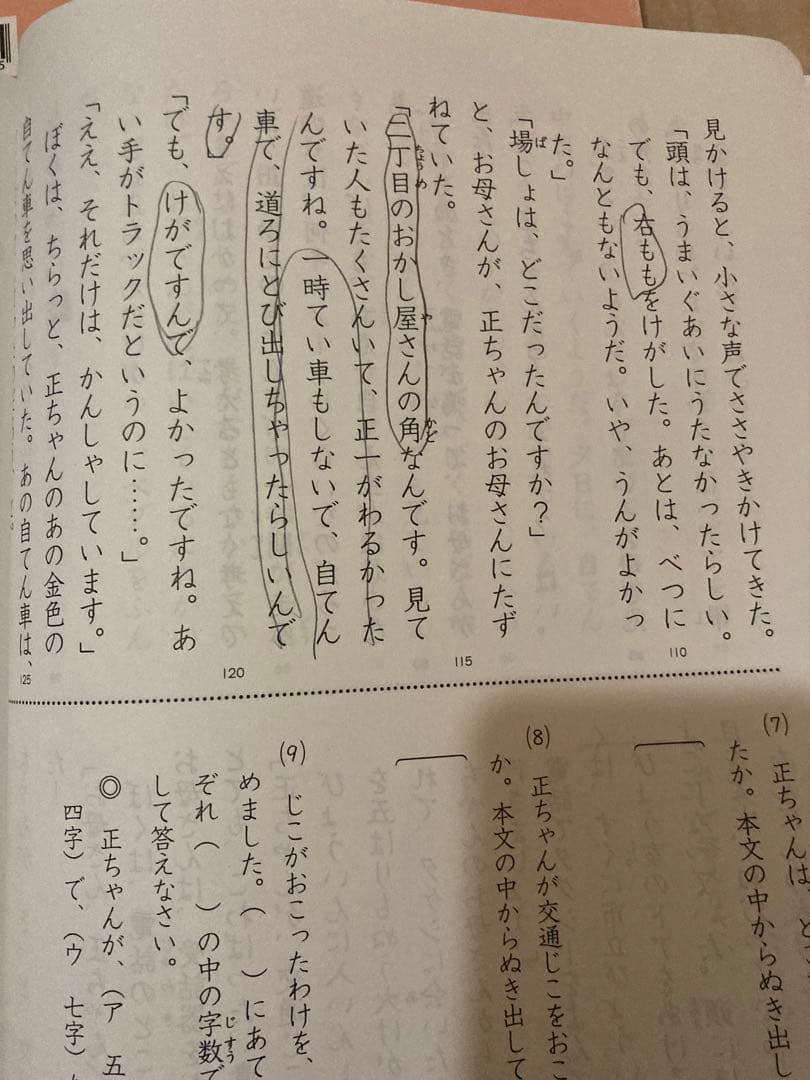 見かけると、小さな声でささやきかけてきた。
「頭は、うまいぐあいにうたなかったらしい。
でも、右ももをけがした。あとは、べつに
なんともないようだ。いや、うんがよかっ
た。」
「場しょは、どこだったんですか？」
と、お母さんが、正ちゃんのお母さんにたず
ねていた。
「二丁目のおかし屋さんの角なんです。見て
いた人もたくさんいて、正一がわるかった
んですね。一時てい車もしないで、自てん
車で、道ろにとび出しちゃったらしいんで
す。
「でも、けがですんで、よかったですね。あ
い手がトラックだというのに……。」
「ええ、それだけは、かんしゃしています。」
ぼくは、ちらっと、正ちゃんのあの金色の
自てん車を思い出していた。あの自てん車は、
110
115
120
125
(7) 正ちゃんは、
たか。本文の中からぬき出し
(8) 正ちゃんが交通じこをおこ
か。本文の中からぬき出して
(9) じこがおこったわけを、
めました。( )にあて
ぞれ( )の中の字数で
して答えなさい。
◎ 正ちゃんが、(ア 五
四字)で、(ウ 七字)